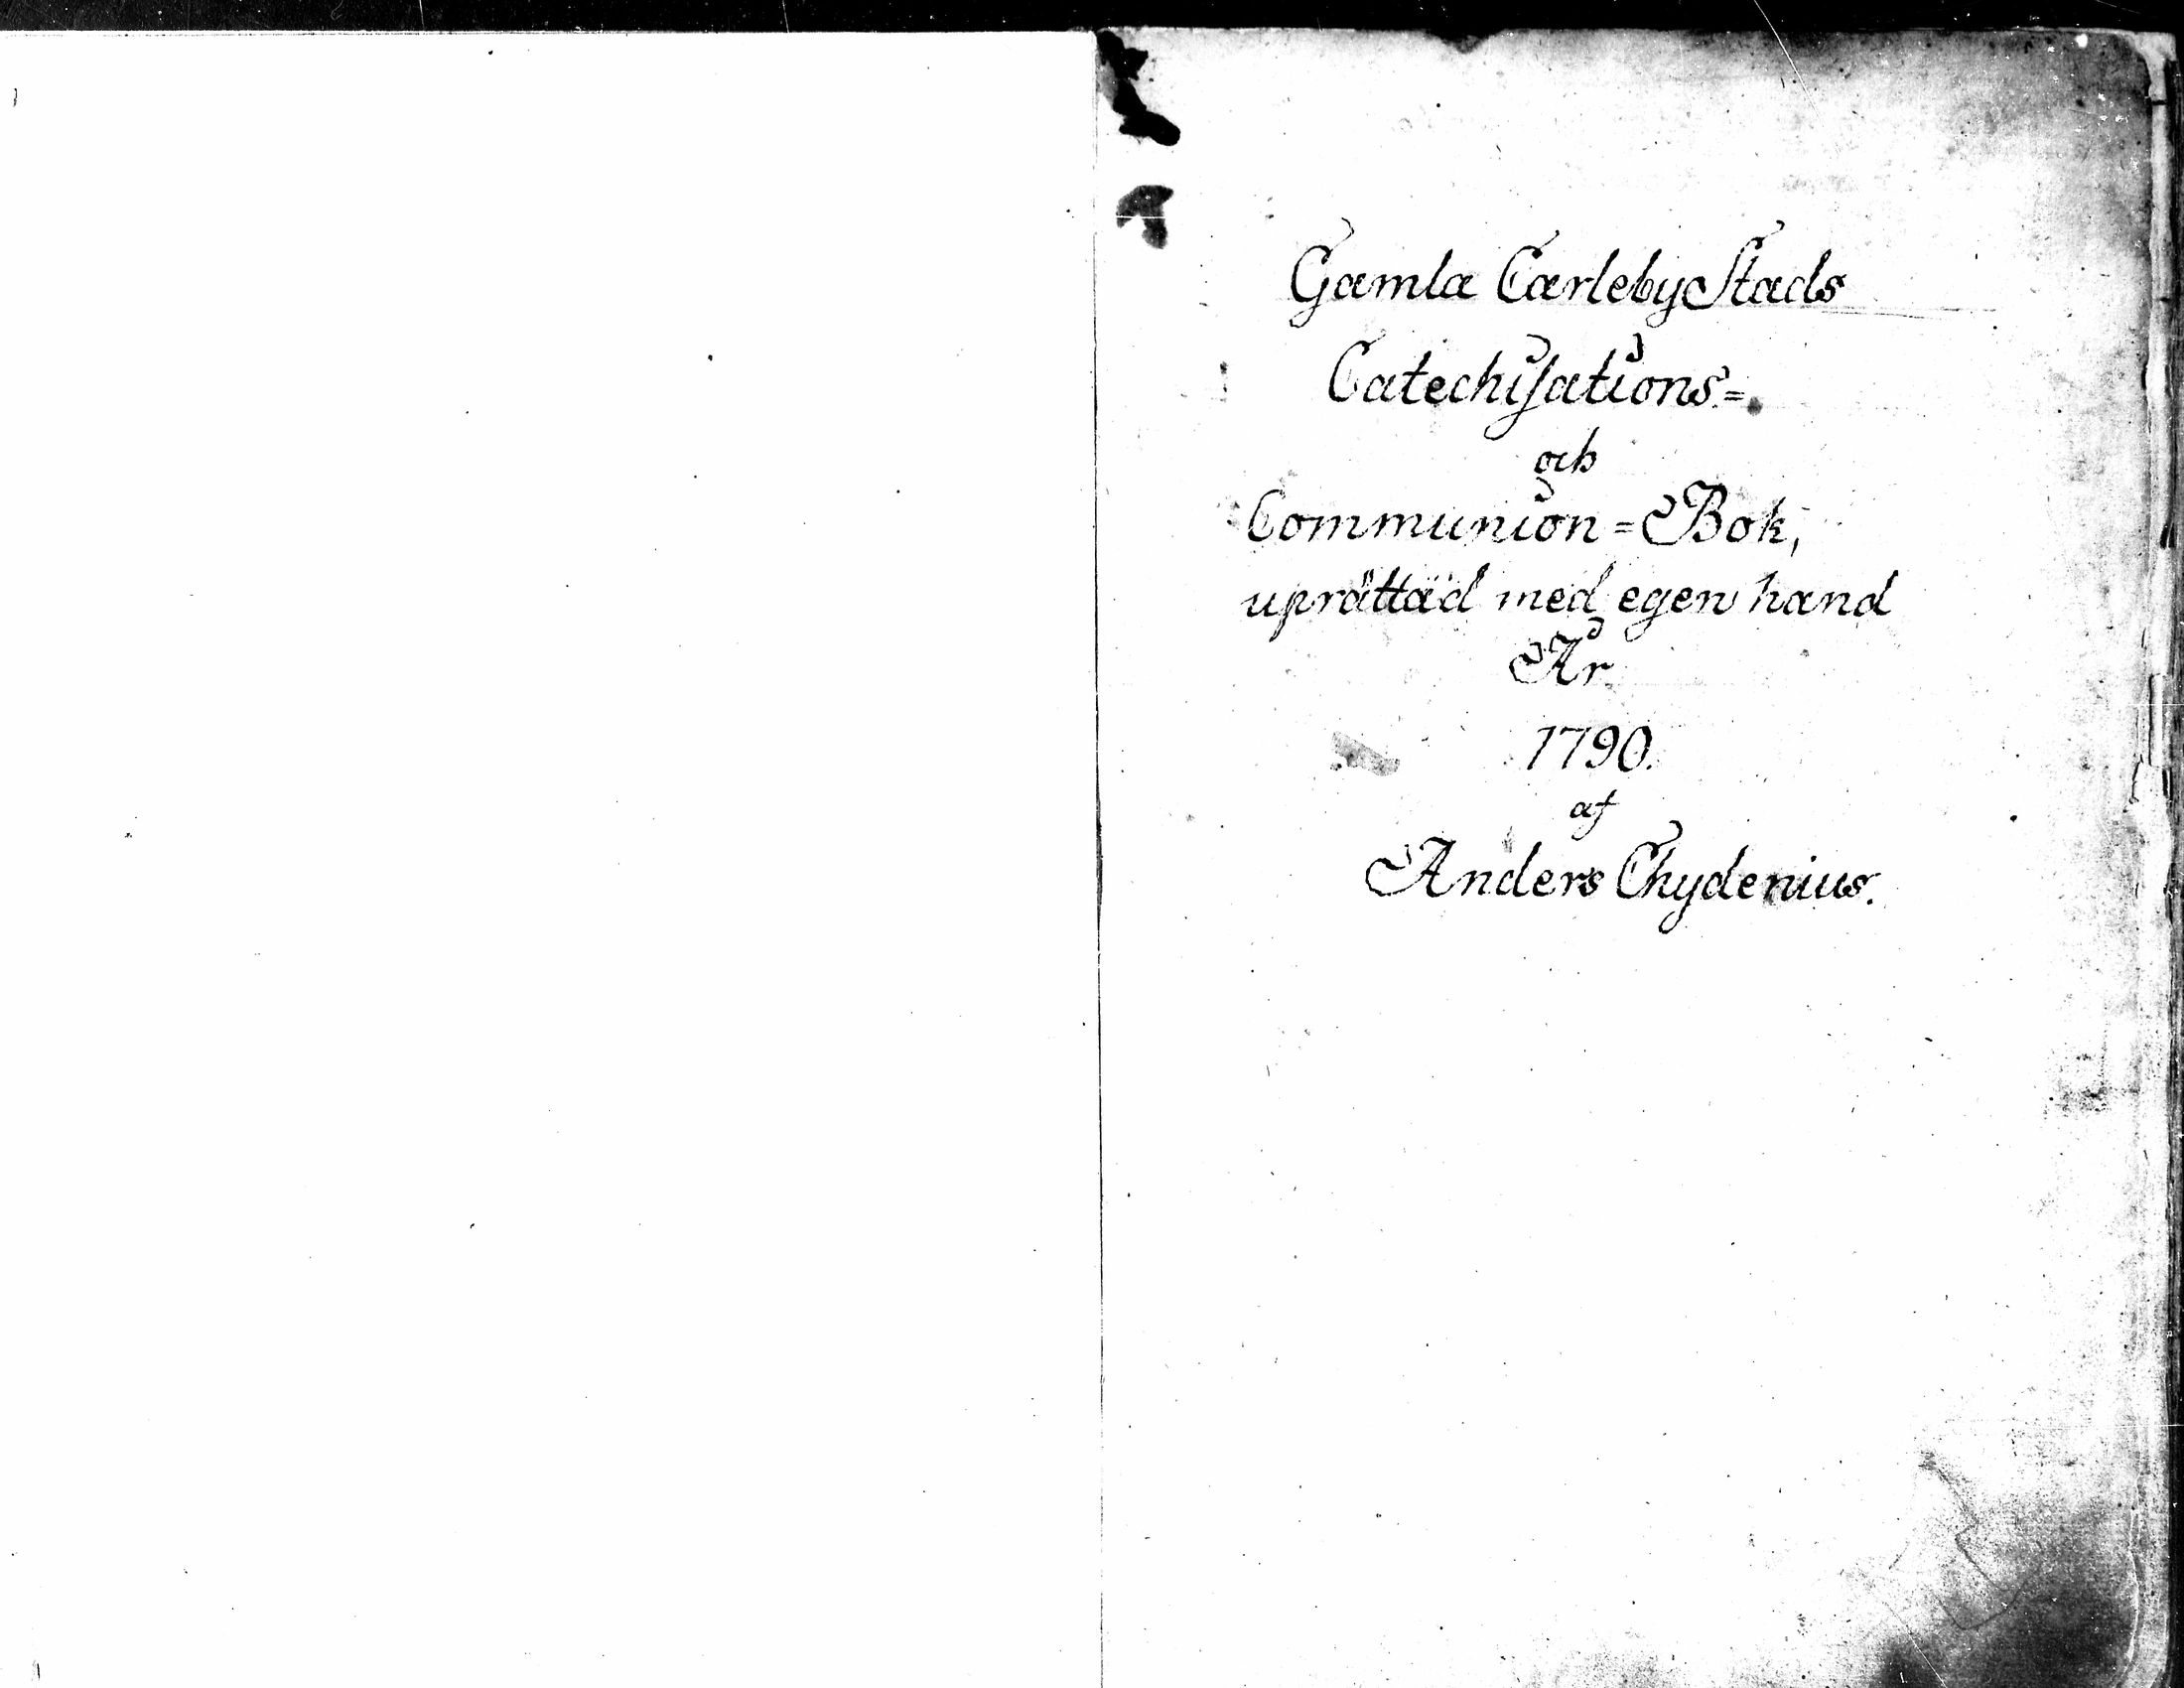 Gamla Carleby Stads
Catechisations=
och
Communion=Bok,
uprättad med egen hand
År
1790.
af
Anders Chydenius.